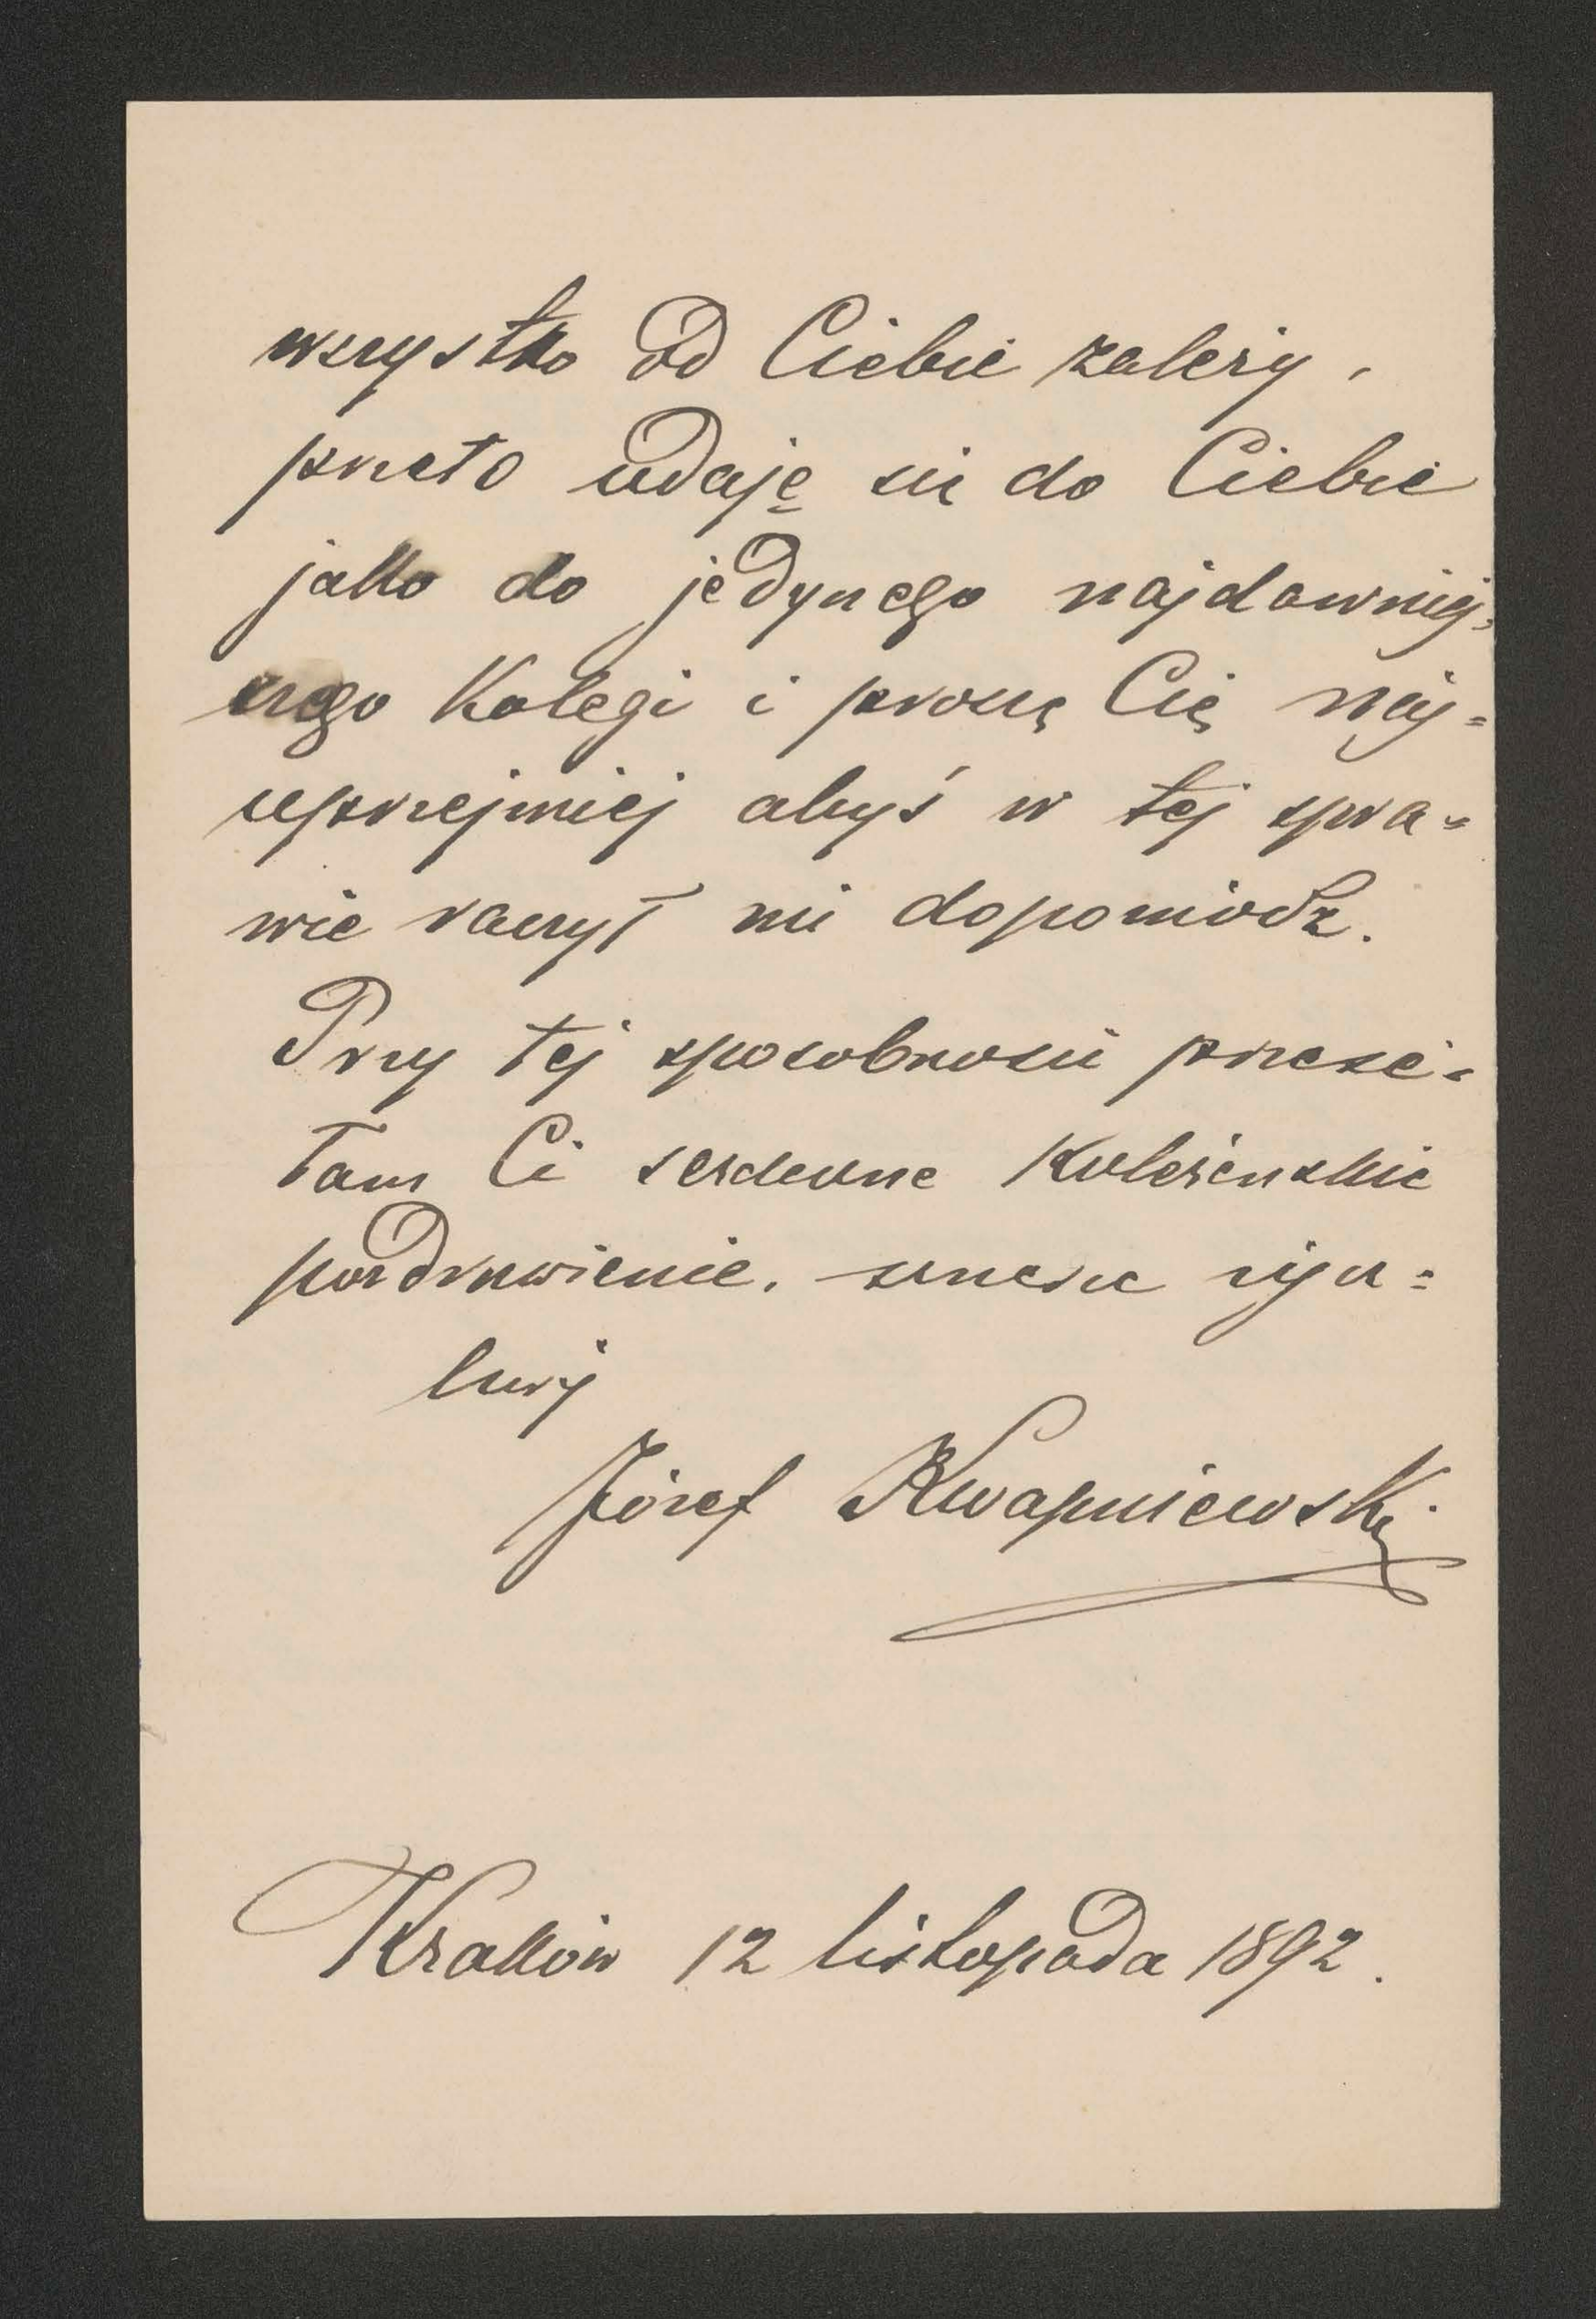 wszystko od Ciebie zależy,
przeto udaję się do Ciebie
jako do jedynego najdawniej-
szego Kolegi i proszę Cię naj=
uprzejmiej abyś w tej spra=
wie raczył mi dopomódz.
Przy tej sposobności przesé=
łam Ci serdeczne Koleżeńskie
pozdrowienie. szczerze życz=
liwy
Józef Kwapniewski
Kraków 12 listopada 1892.